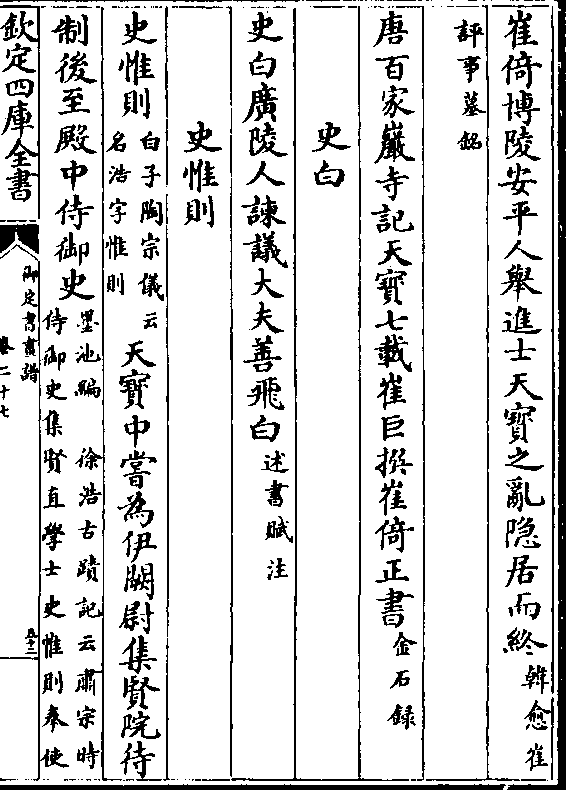 崔倚博陵安平人舉進士天寶之亂隐居而終韓愈崔
評事墓銘
唐百家巖寺記天寶七載崔巨撰崔倚正書金石録
史白
史白廣陵人諫議大夫善飛白述書賦注
史惟則
史惟則白子陶宗儀云名浩字惟則天寶中嘗為伊闕尉集賢院待
制後至殿中侍御史墨池編徐浩古蹟記云肅宗時侍御史集賢直學士史惟則奉使
欽定四庫全書
御定書畫譜
卷二十七
五十二